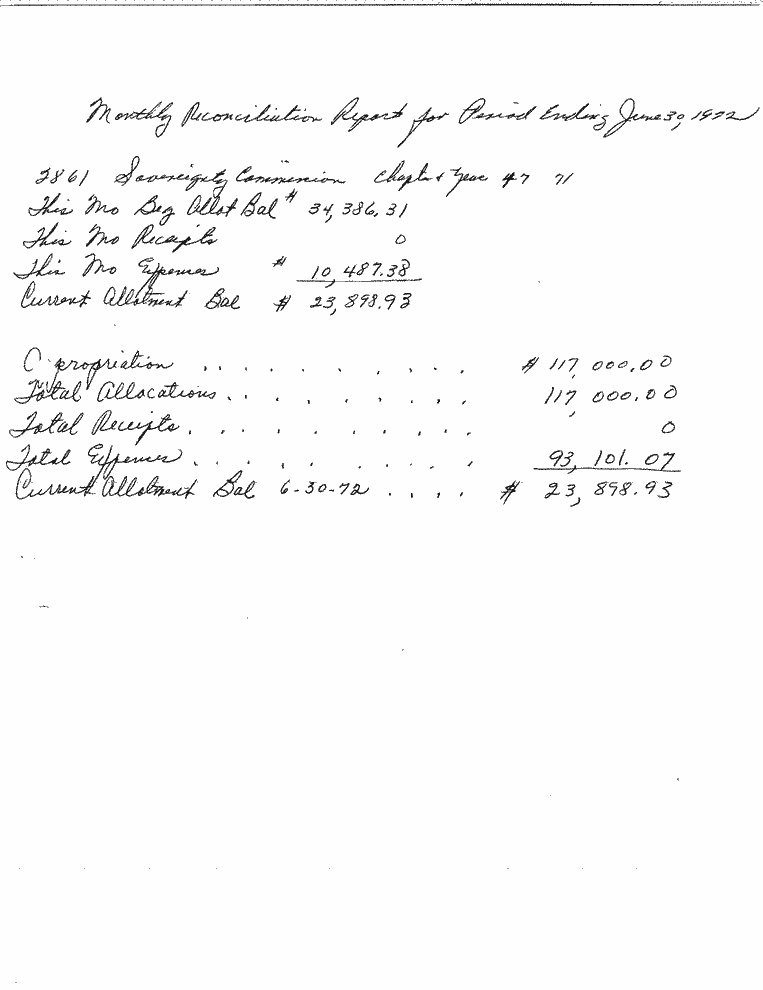 Monthly Reconciliation Report for Period Ending June 30, 1972
2861 Sovereignty Commission Chapter & Year 47 71
This Mo Beg Allot Bal $ 34,386.31
This Mo Receipts 0
This Mo Expenses $ 10,487.38
Current Allotment Bal $ 23,898.93
propriation . . . . . . . . . . $ 117,000.00
Total Allocations . . . . . . . . . 117,000.00
Total Receipts . . . . . . . . . . 0
Total Expenses . . . . . . . . 93,101.07
Current Allotment Bal 6-30-72 . . . . $ 23,898.93